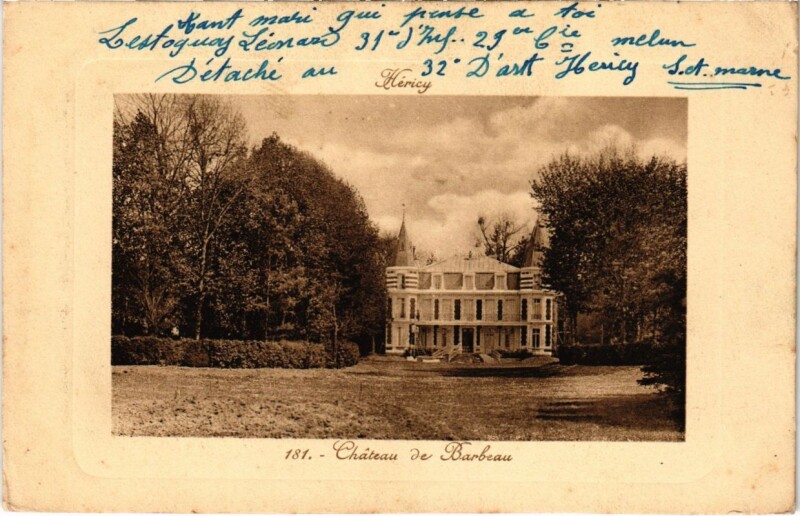 Kant mari qui pense a toi
Lestoquoy Léonard 31e d'Inf. 29e Cie melun
Détaché au 32e D'art Hericy S.et. marne
Héricy
181. - Château de Barbeau